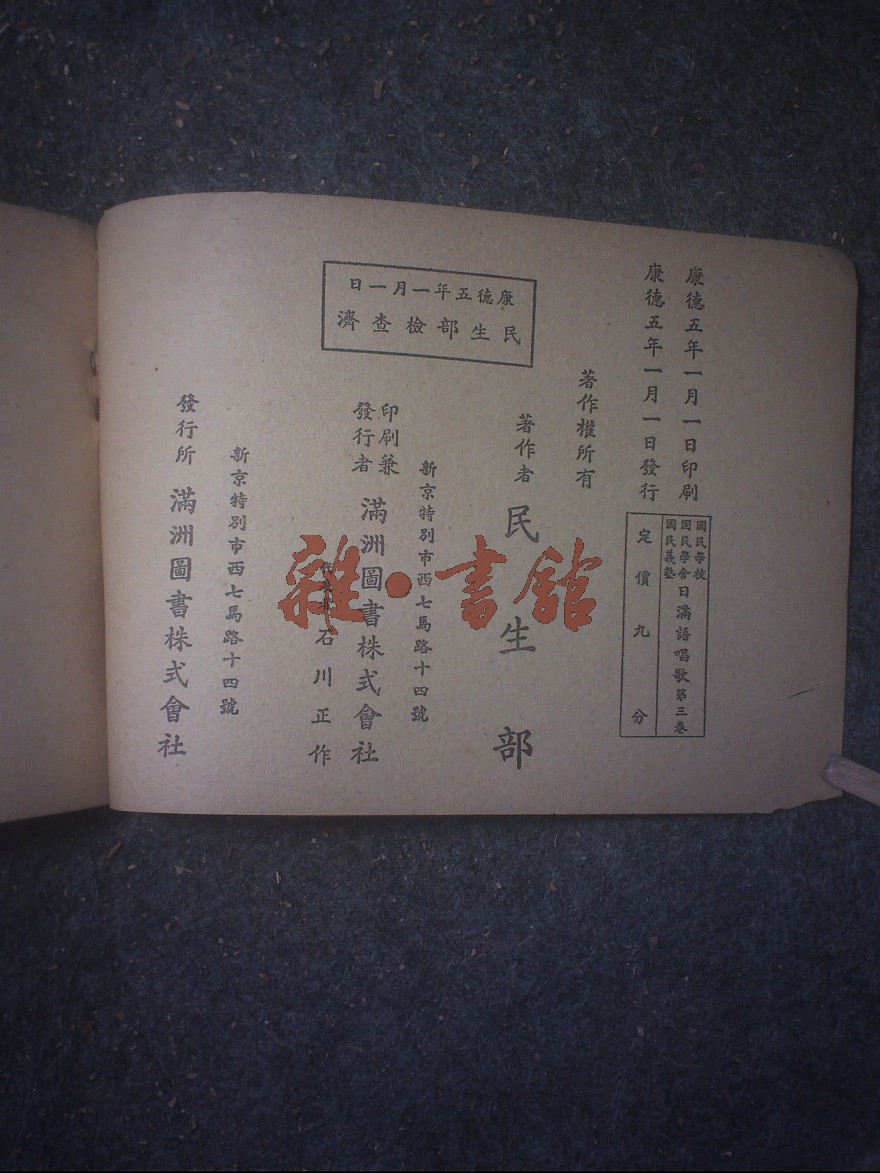 康德五年一月一日印刷
康德五年一月一日發行
國民學校
國民學舍
國民義塾
日滿語唱歌第三卷
定價九分
著作權所有
著作者 民生部
新京特別市西七馬路十四號
印刷兼
發行者
滿洲圖書株式會社
石川正作
康德五年一月一日
民生部檢查濟
新京特別市西七馬路十四號
發行所 滿洲圖書株式會社
雜·書館